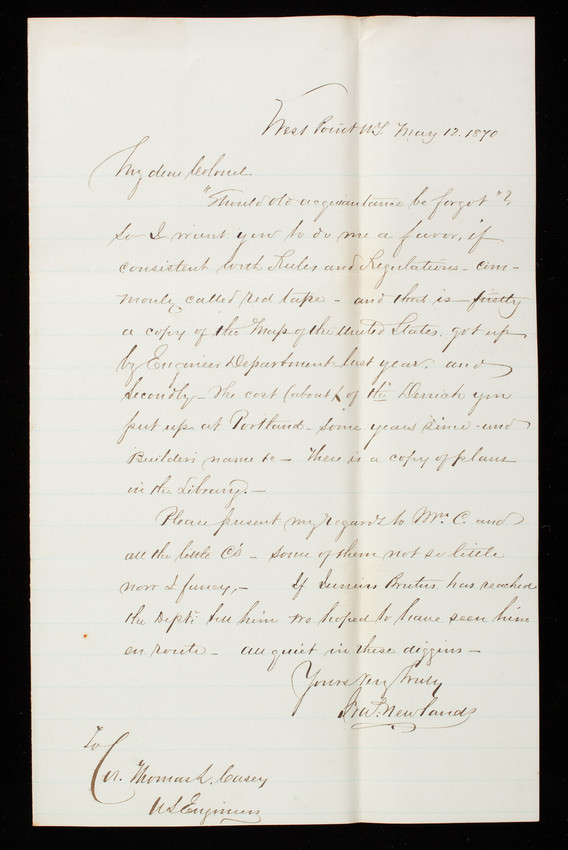 West Point N.Y. May 12. 1870
My dear Colonel.
"Should old acquaintance be forgot"?,
so I want you to do me a favor, if
consistent with Rules and Regulations - com-
monly called red tape - and that is firstly
a copy of the Map of the United States. got up
by Engineer Department last year. and
Secondly - the cost (about) of the Derrick you
put up at Portland - some years since - and
Builders name &c - There is a copy of plans
in the Library. -
Please present my regards to Mrs. C. and
all the little C's - some of them not so little
now I fancy, - If Junius Brutus has reached
the Dept: tell him we hoped to have seen him
en route - all quiet in these diggins -
Yours very truly
Newlands
To
Col. Thomas L. Casey
US Engineers